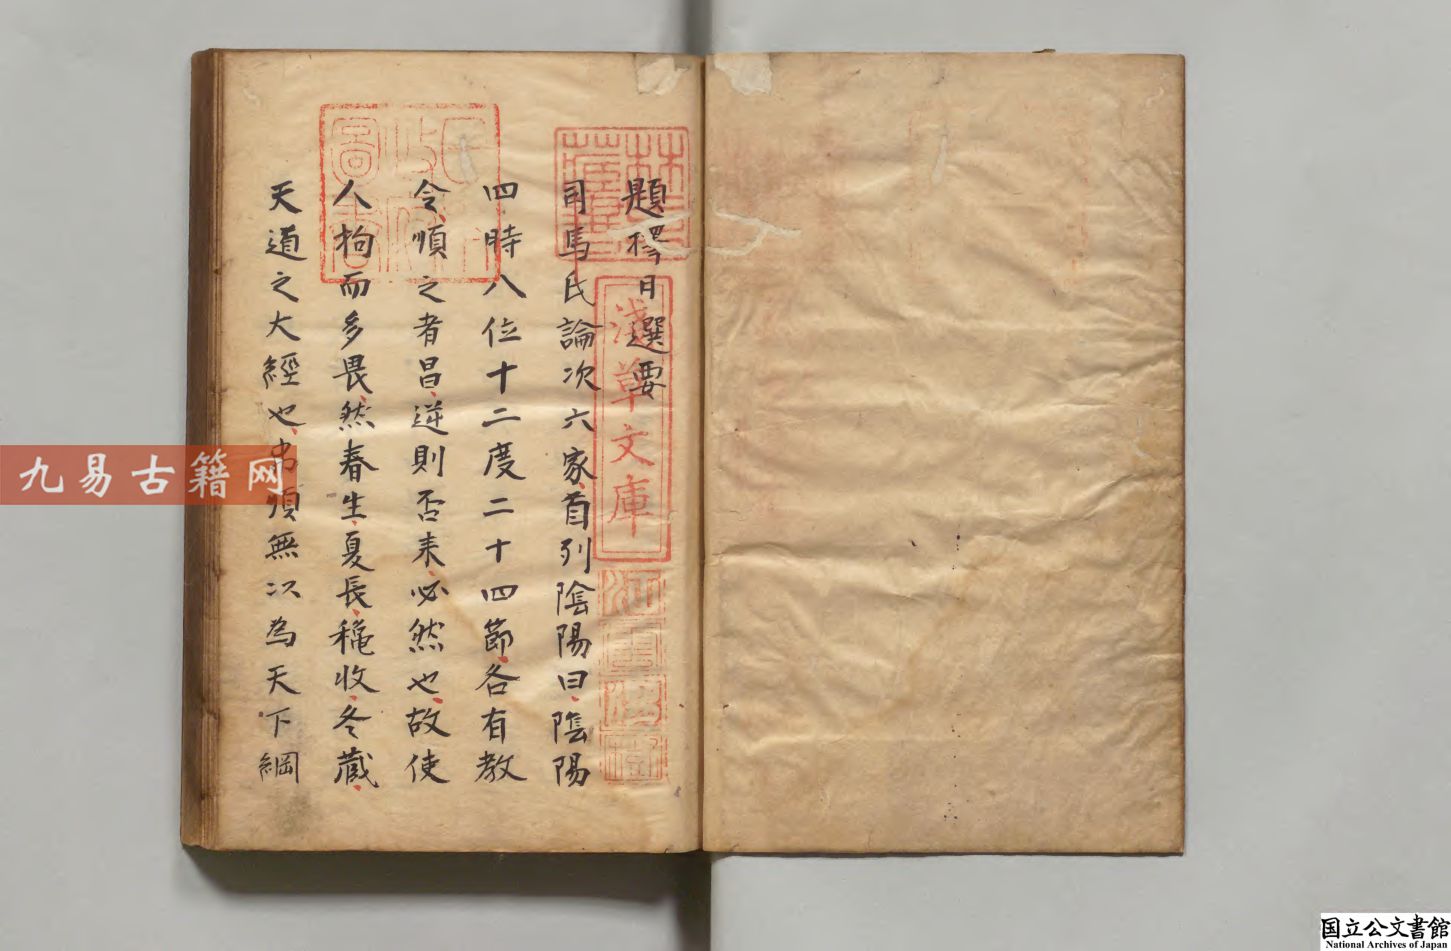 題擇日選要
司馬氏論次六家首列陰陽曰陰陽
四時八位十二度二十四節各有教
令順之者昌逆則否未必然也故使
人拘而多畏然春生夏長穐收冬藏
天道之大經也弗順無以為天下綱
林氏藏書
淺草文庫
江雲渭樹
圖書
九易古籍网
国立公文書館
National Archives of Japan